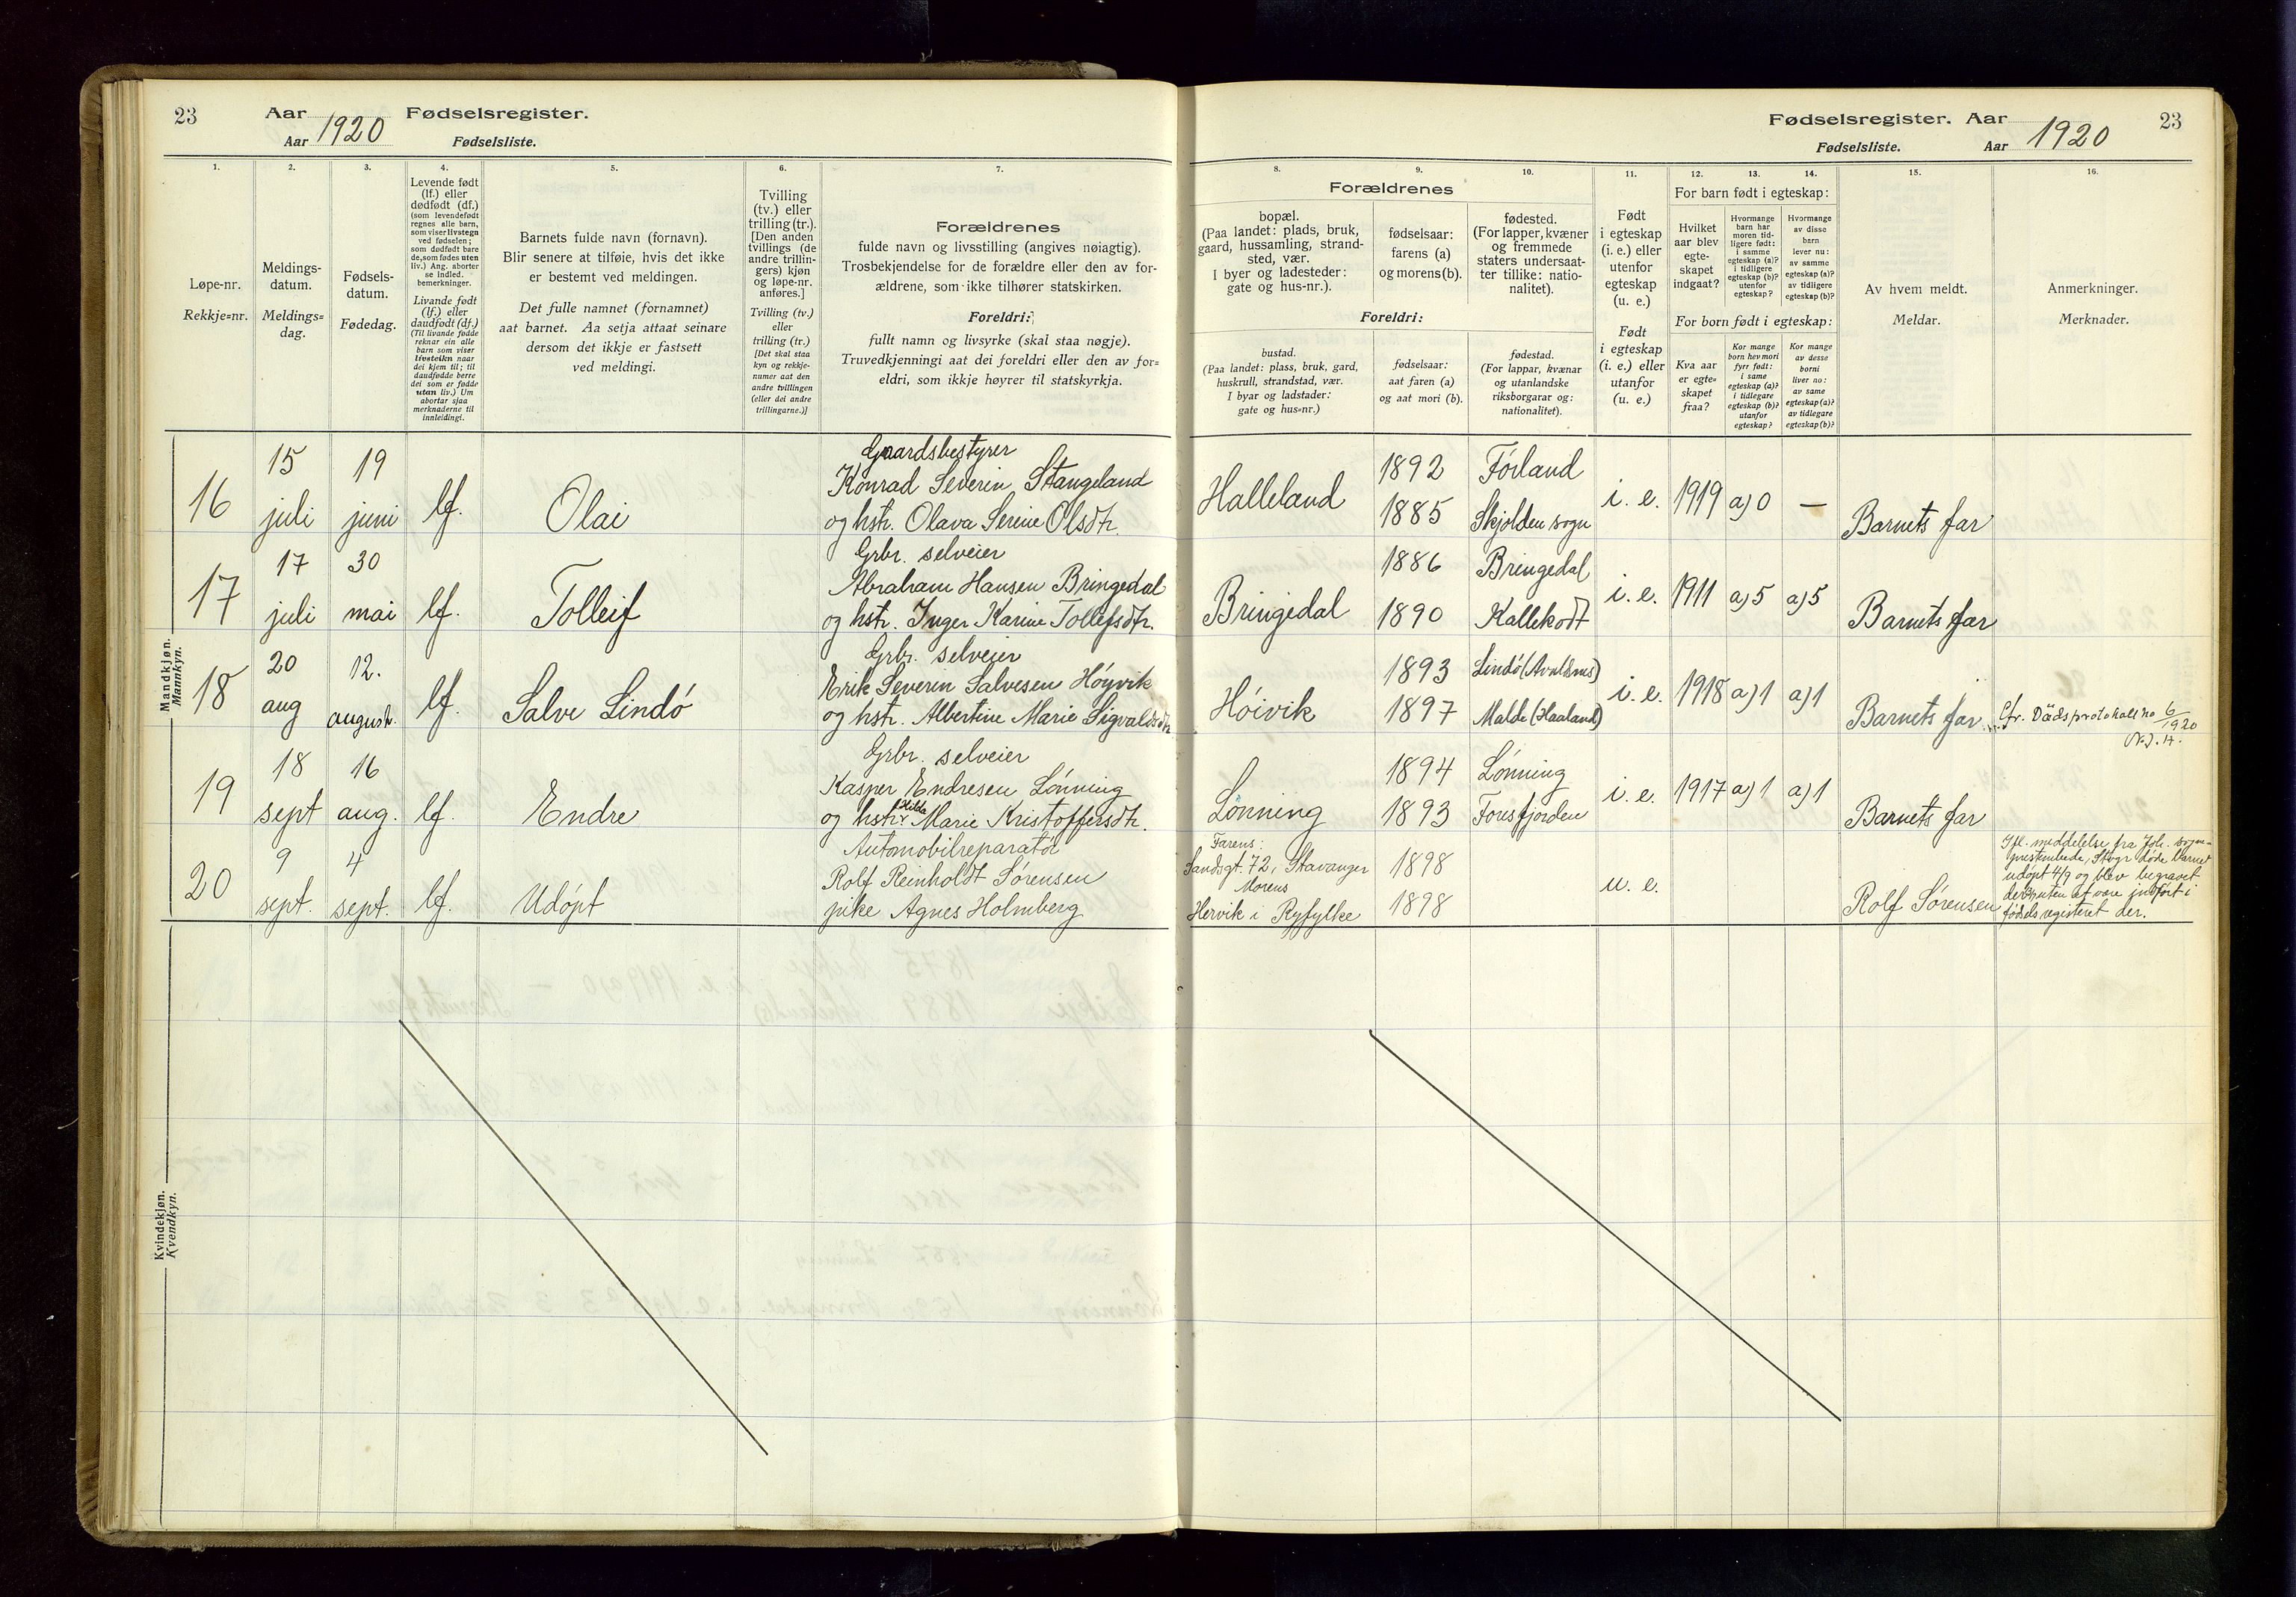 23
Aar Fødselsregister.
Aar 1920 Fødselsliste.
1.
2.
3.
4.
5.
6.
7.
Løpe-nr.
Rekkje=nr.
Meldings-
datum.
Meldings=
dag.
Fødsels-
datum.
Fødedag.
Levende født
(lf.) eller
dødfødt (df.)
(som levendefødt
regnes alle barn,
som viser livstegn
ved fødselen;
som dødfødt bare
de, som fødes uten
liv.) Ang. aborter
se indled.
bemerkninger.
Livande født
(lf.) eller
daudfødt (df.)
(Til livande fødde
reknar ein alle
barn som viser
livsteikn naar
dei kjem til; til
daudfødde berre
dei som er fødde
utan liv.) Um
abortar sjaa
merknaderne til
innleidingi.
Barnets fulde navn (fornavn).
Blir senere at tilføie, hvis det ikke
er bestemt ved meldingen.
Det fulle namnet (fornamnet)
aat barnet. Aa setja attaat seinare
dersom det ikkje er fastsett
ved meldingi.
Tvilling
(tv.) eller
trilling (tr.).
[Den anden
tvillings (de
andre trillin-
gers) kjøn
og løpe-nr.
anføres.]
Tvilling (tv.)
eller
trilling (tr.)
[Det skal staa
kyn og rekkje-
numer aat den
andre tvillingen
(eller dei andre
trillingarne.)]
Forældrenes
fulde navn og livsstilling (angives nøiagtig).
Trosbekjendelse for de forældre eller den av for-
ældrene, som ikke tilhører statskirken.
Foreldri:
fullt namn og livsyrke (skal staa nøgje).
Truvedkjenningi aat dei foreldri eller den av for=
eldri, som ikkje høyrer til statskyrkja.
Fødselsregister. Aar 23
Fødselsliste. Aar 1920
8.
9.
10.
11.
12.
13.
14.
15.
16.
Forældrenes
bopæl.
(Paa landet: plads, bruk,
gaard, hussamling, strand-
sted, vær.
I byer og ladesteder:
gate og hus-nr.).
fødselsaar:
farens (a)
og morens (b).
fødested.
(For lapper, kvæner
og fremmede
staters undersaat-
ter tillike: natio-
nalitet).
Foreldri:
bustad.
(Paa landet: plass, bruk, gard,
huskrull, strandstad, vær.
I byar og ladstader:
gate og hus=nr.)
fødselsaar:
aat faren (a)
og aat mori (b).
fødestad.
(For lappar, kvænar
og utanlandske
riksborgarar og:
nationalitet).
Født
i egteskap
(i. e.) eller
utenfor
egteskap
(u. e.)
Født
i egteskap
(i. e.) eller
utanfor
(u. e.)
For barn født i egteskap:
Hvilket
aar blev
egte-
skapet
indgaat?
Hvormange
barn har
moren tid-
ligere født:
i samme
egteskap (a)?
i tidligere
egteskap (b)?
utenfor
egteskap?
Hvormange
av disse
barn
lever nu:
av samme
egteskap (a)?
av tidligere
egteskap (b)?
For born født i egteskap:
Kva aar
er egte=
skapet
fraa?
Kor mange
born hev mori
fyrr født:
i same
egteskap (a)?
i tidlegare
egteskap (b)?
utanfor
egteskap?
Kor mange
av desse
borni
liver no:
av same
egteskap (a)?
av tidlegare
egteskap (b)?
Av hvem meldt.
Meldar.
Anmerkninger.
Merknader.
Mandkjøn.
Mannkyn.
16 15 juli 19 juni lf. Olai
Gaardsbestyrer
Konrad Severin Stangeland
og hstr. Olava Serine Olsdtr.
Halleland 1892 Førland
1885 Skjolden sogn
i. e. 1919 a) 0 — Barnets far
17 17 juli 30 mai lf. Tolleif
Grbr. selveier
Abraham Hansen Bringedal
og hstr. Inger Karine Tollefsdtr.
Bringedal 1886 Bringedal
1890 Kallekodt
i. e. 1911 a) 5 a) 5 Barnets far
18 20 aug 12. august. lf. Salve Lindø
Grbr. selveier
Erik Severin Salvesen Høyvik
og hstr. Albertine Marie Sigvaldsdtr
Høivik 1893 Lindø (Avaldsnes)
1897 Malde (Haaland)
i. e. 1918 a) 1 a) 1 Barnets far
Cfr. Dødsprotokoll no 6/1920
19 18 sept 16 aug. lf. Endre
Grbr. selveier
Kasper Endresen Lønning
og hstr. Hilda Marie Kristoffersdtr.
Lønning 1894 Lønning
1893 Foresfjorden
i. e. 1917 a) 1 a) 1 Barnets far
20 9 sept. 4 sept. lf. Udøpt
Automobilreparatør
Rolf Reinholdt Sørensen
pike Agnes Holmberg
Farens:
Sandsgt. 72, Stavanger 1898
Morens
Hervik i Ryfylke 1898
u. e. Rolf Sørensen
Ifl. meddelelse fra Joh. sogne-
presteembede, Stvgr døde barnet
udøpt 4/9 og blev begravet
uten at være indført i
fødselsregisteret der.
Kvindekjøn.
Kvendkyn.